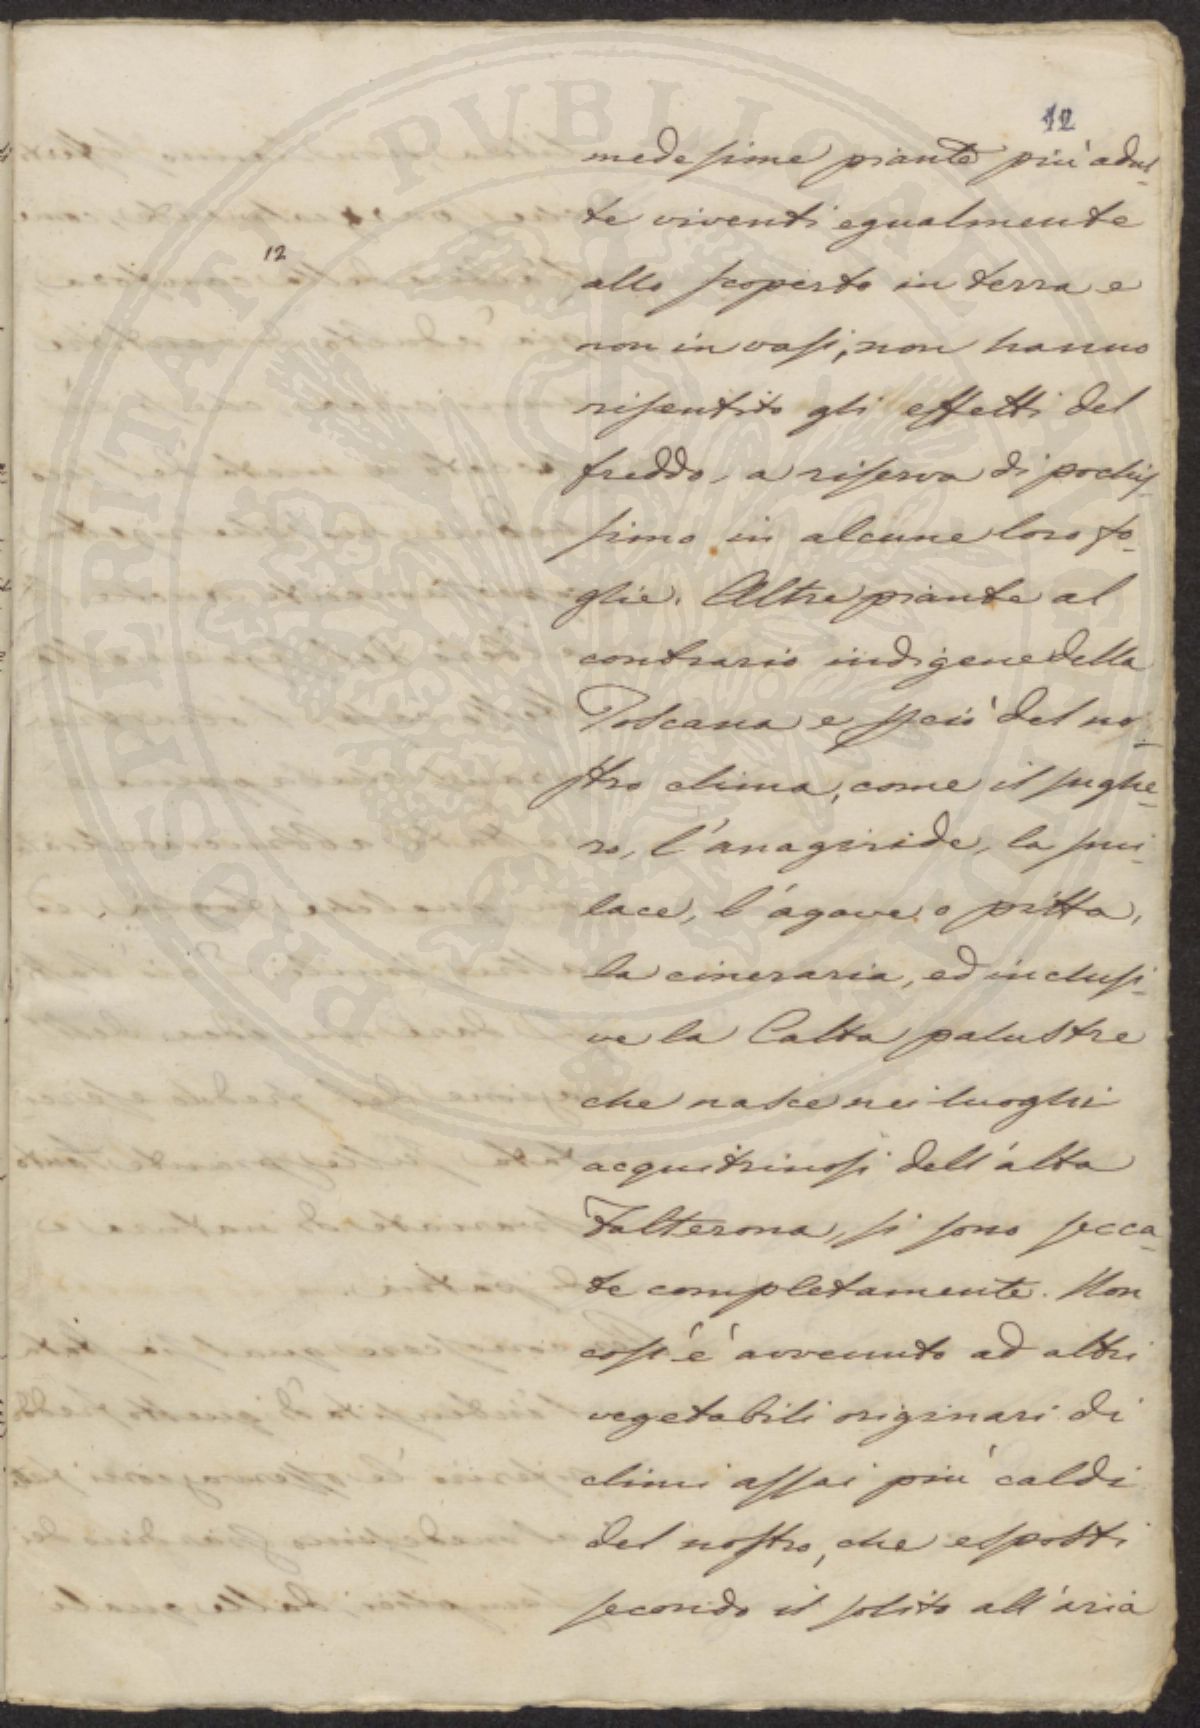 12
medesime piante più adul-
te viventi egualmente
12
allo scoperto in terra e
non in vasi, non hanno
risentito gli effetti del
freddo, a riserva di pochis-
simo in alcune loro fo-
glie. Altre piante al
contrario indigene della
Toscana e più del no-
stro clima, come il sughe-
ro, l'anagiride, la smi-
lace, l'agave o pitta,
la cineraria, ed inclusi-
ve la Calta palustre
che nasce nei luoghi
acquitrinosi dell'alta
Falterona, si sono secca-
te completamente. Non
così è avvenuto ad altri
vegetabili originari di
climi assai più caldi
del nostro, che esposti
secondo il solito all'aria
PROSPERITATI PUBLICAE